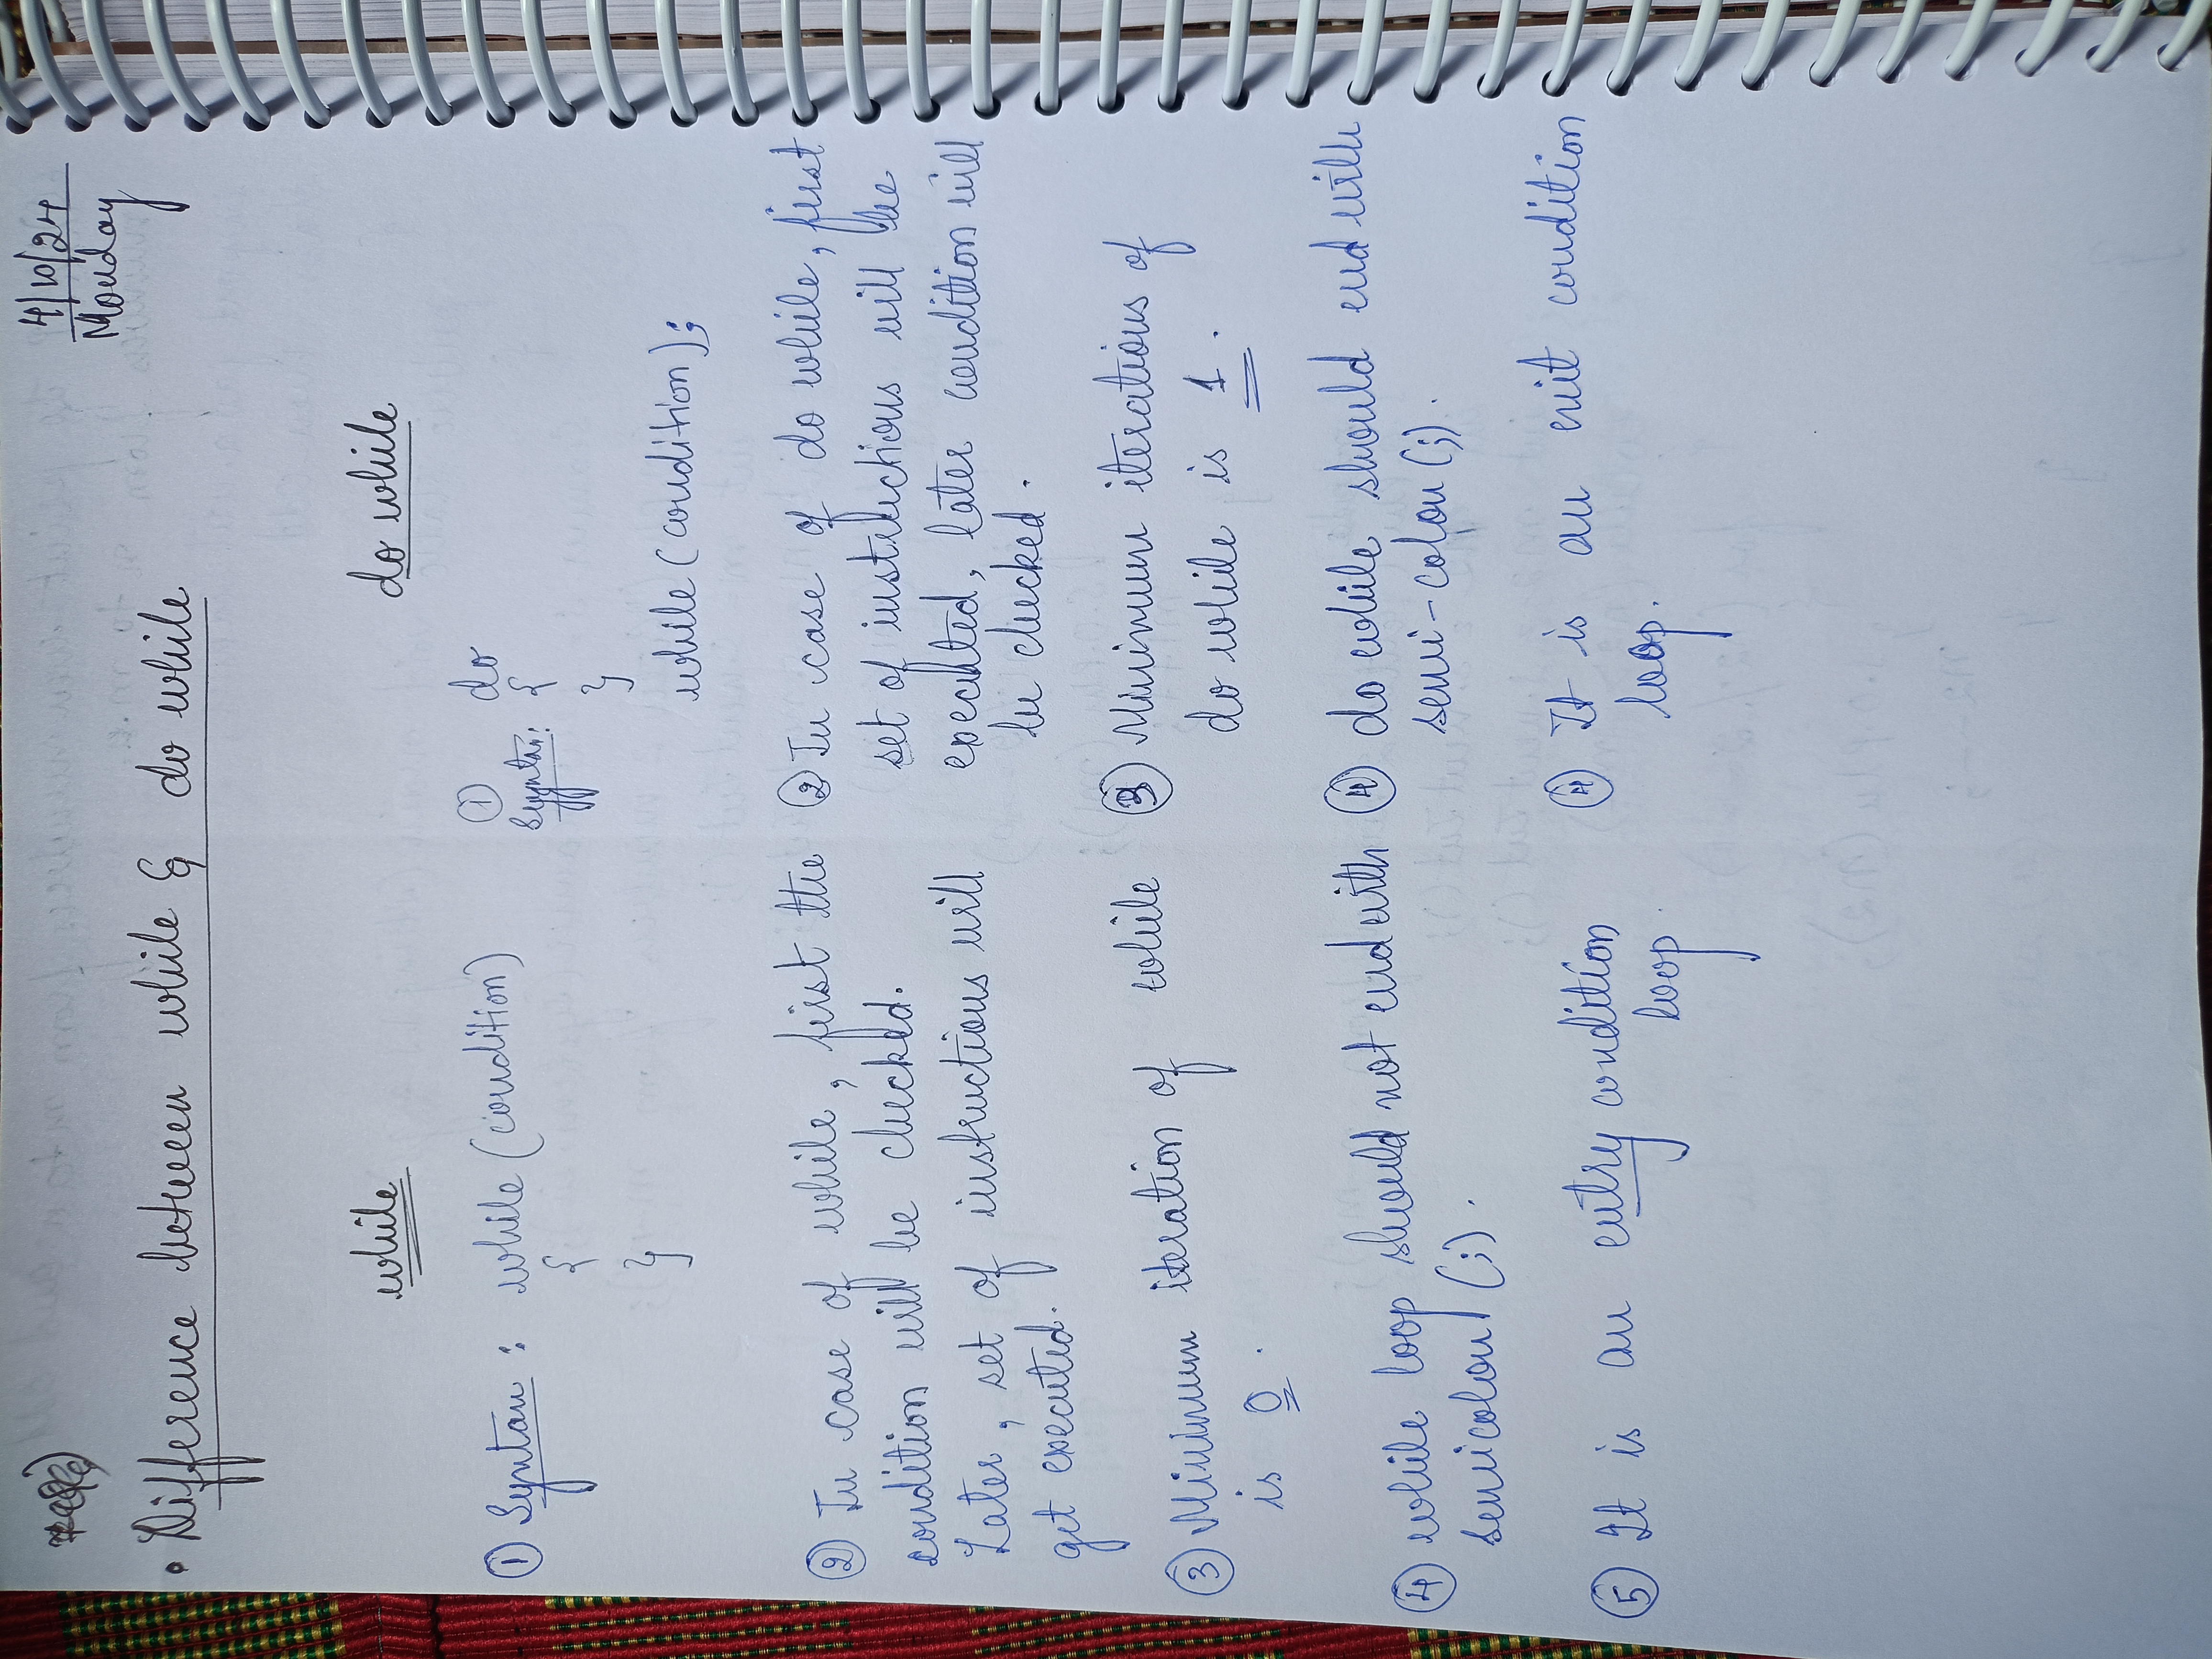 4/10/24
Monday
• Difference between while & do while
while
① Syntax : while (condition)
{
}
② In case of while, first the
condition will be checked.
Later, set of instructions will
get executed.
③ Minimum iteration of while
is 0.
④ while loop should not end with
semicolon (;).
⑤ It is an entry condition
loop
do while
①
Syntax: do
{
}
while (condition);
② In case of do while, first
set of instructions will be
executed, later condition will
be checked.
③ Minimum iterations of
do while is 1.
④ do while should end with
semi-colon (;).
④ It is an exit condition
loop.